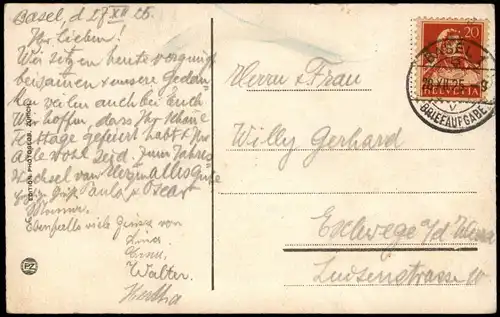 Basel, d 27 XII 25.
Ihr Lieben!
Wir sitzen heute vergnügt
beisammen & unsere Gedan-
ken weilen auch bei Euch
Wir hoffen, dass Ihr schöne
Festtage gefeiert habt & Ihr
alle wohl seid. Zum Jahres-
wechsel von Herzen alles Gute
Grüsse Paula & Oscar
Ebenfalls viele Grüsse von
Lina
Walter.
Hertha
EDITION PHOTOGLOB, ZÜRICH
PZ
Herrn & Frau
Willy Gerhard
Eschwege a/d Werra
Luisenstrasse 10
20
HELVETIA
BASEL
XII.25
BRIEFAUFGABE